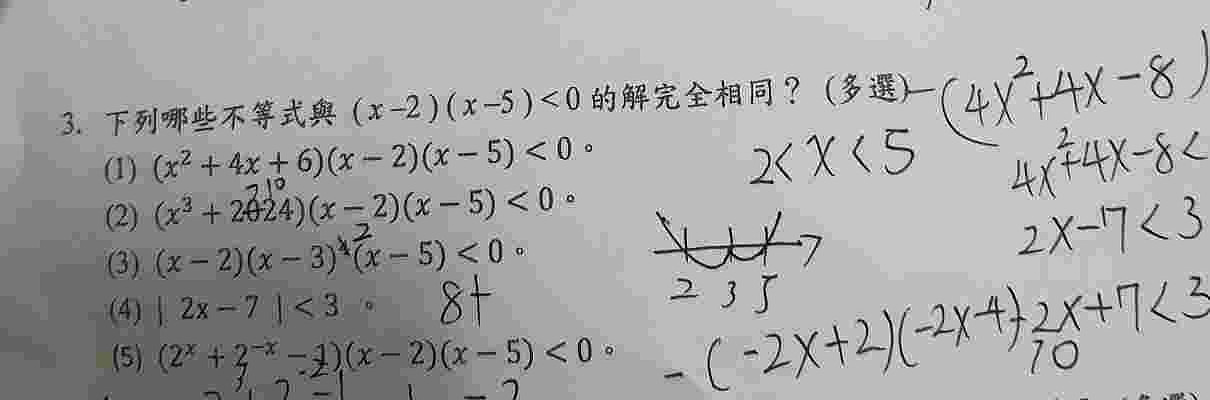 3. 下列哪些不等式與 (x-2)(x-5)<0 的解完全相同？(多選)
(1) (x² + 4x + 6)(x - 2)(x - 5) < 0。
(2) (x³ + 2024)(x - 2)(x - 5) < 0。
(3) (x - 2)(x - 3)²(x - 5) < 0。
(4) | 2x - 7 | < 3。
(5) (2ˣ + 2⁻ˣ - 1)(x - 2)(x - 5) < 0。
2<x<5
2 3 5
8+
-(4x²+4x-8)
4x²+4x-8<
2x-7<3
-2x+7<3
-(-2x+2)(-2x-4)
10